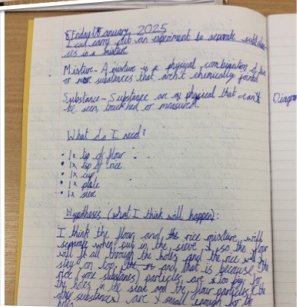 Friday January, 2025
I can carry out an experiment to separate substances
in a mixture
Mixture - A mixture is a physical combination of two
or more substances that aren't chemically joined
Substance - Substance are physical that can't
be seen touched or measured.
What do I need?
• 1x tsp of flour
• 1x tsp of rice
• 1x cup
• 1x plate
• 1x sieve
Hypothesis (what I think will happen):
I think the flour and the rice mixture will
separate when put in the sieve the flour
will fall through the holes and the rice will
stay on top that is because the
rice (one substance) particles are too big for
the holes in the sieve and the flour particles (the
substance) are small enough
Diagram